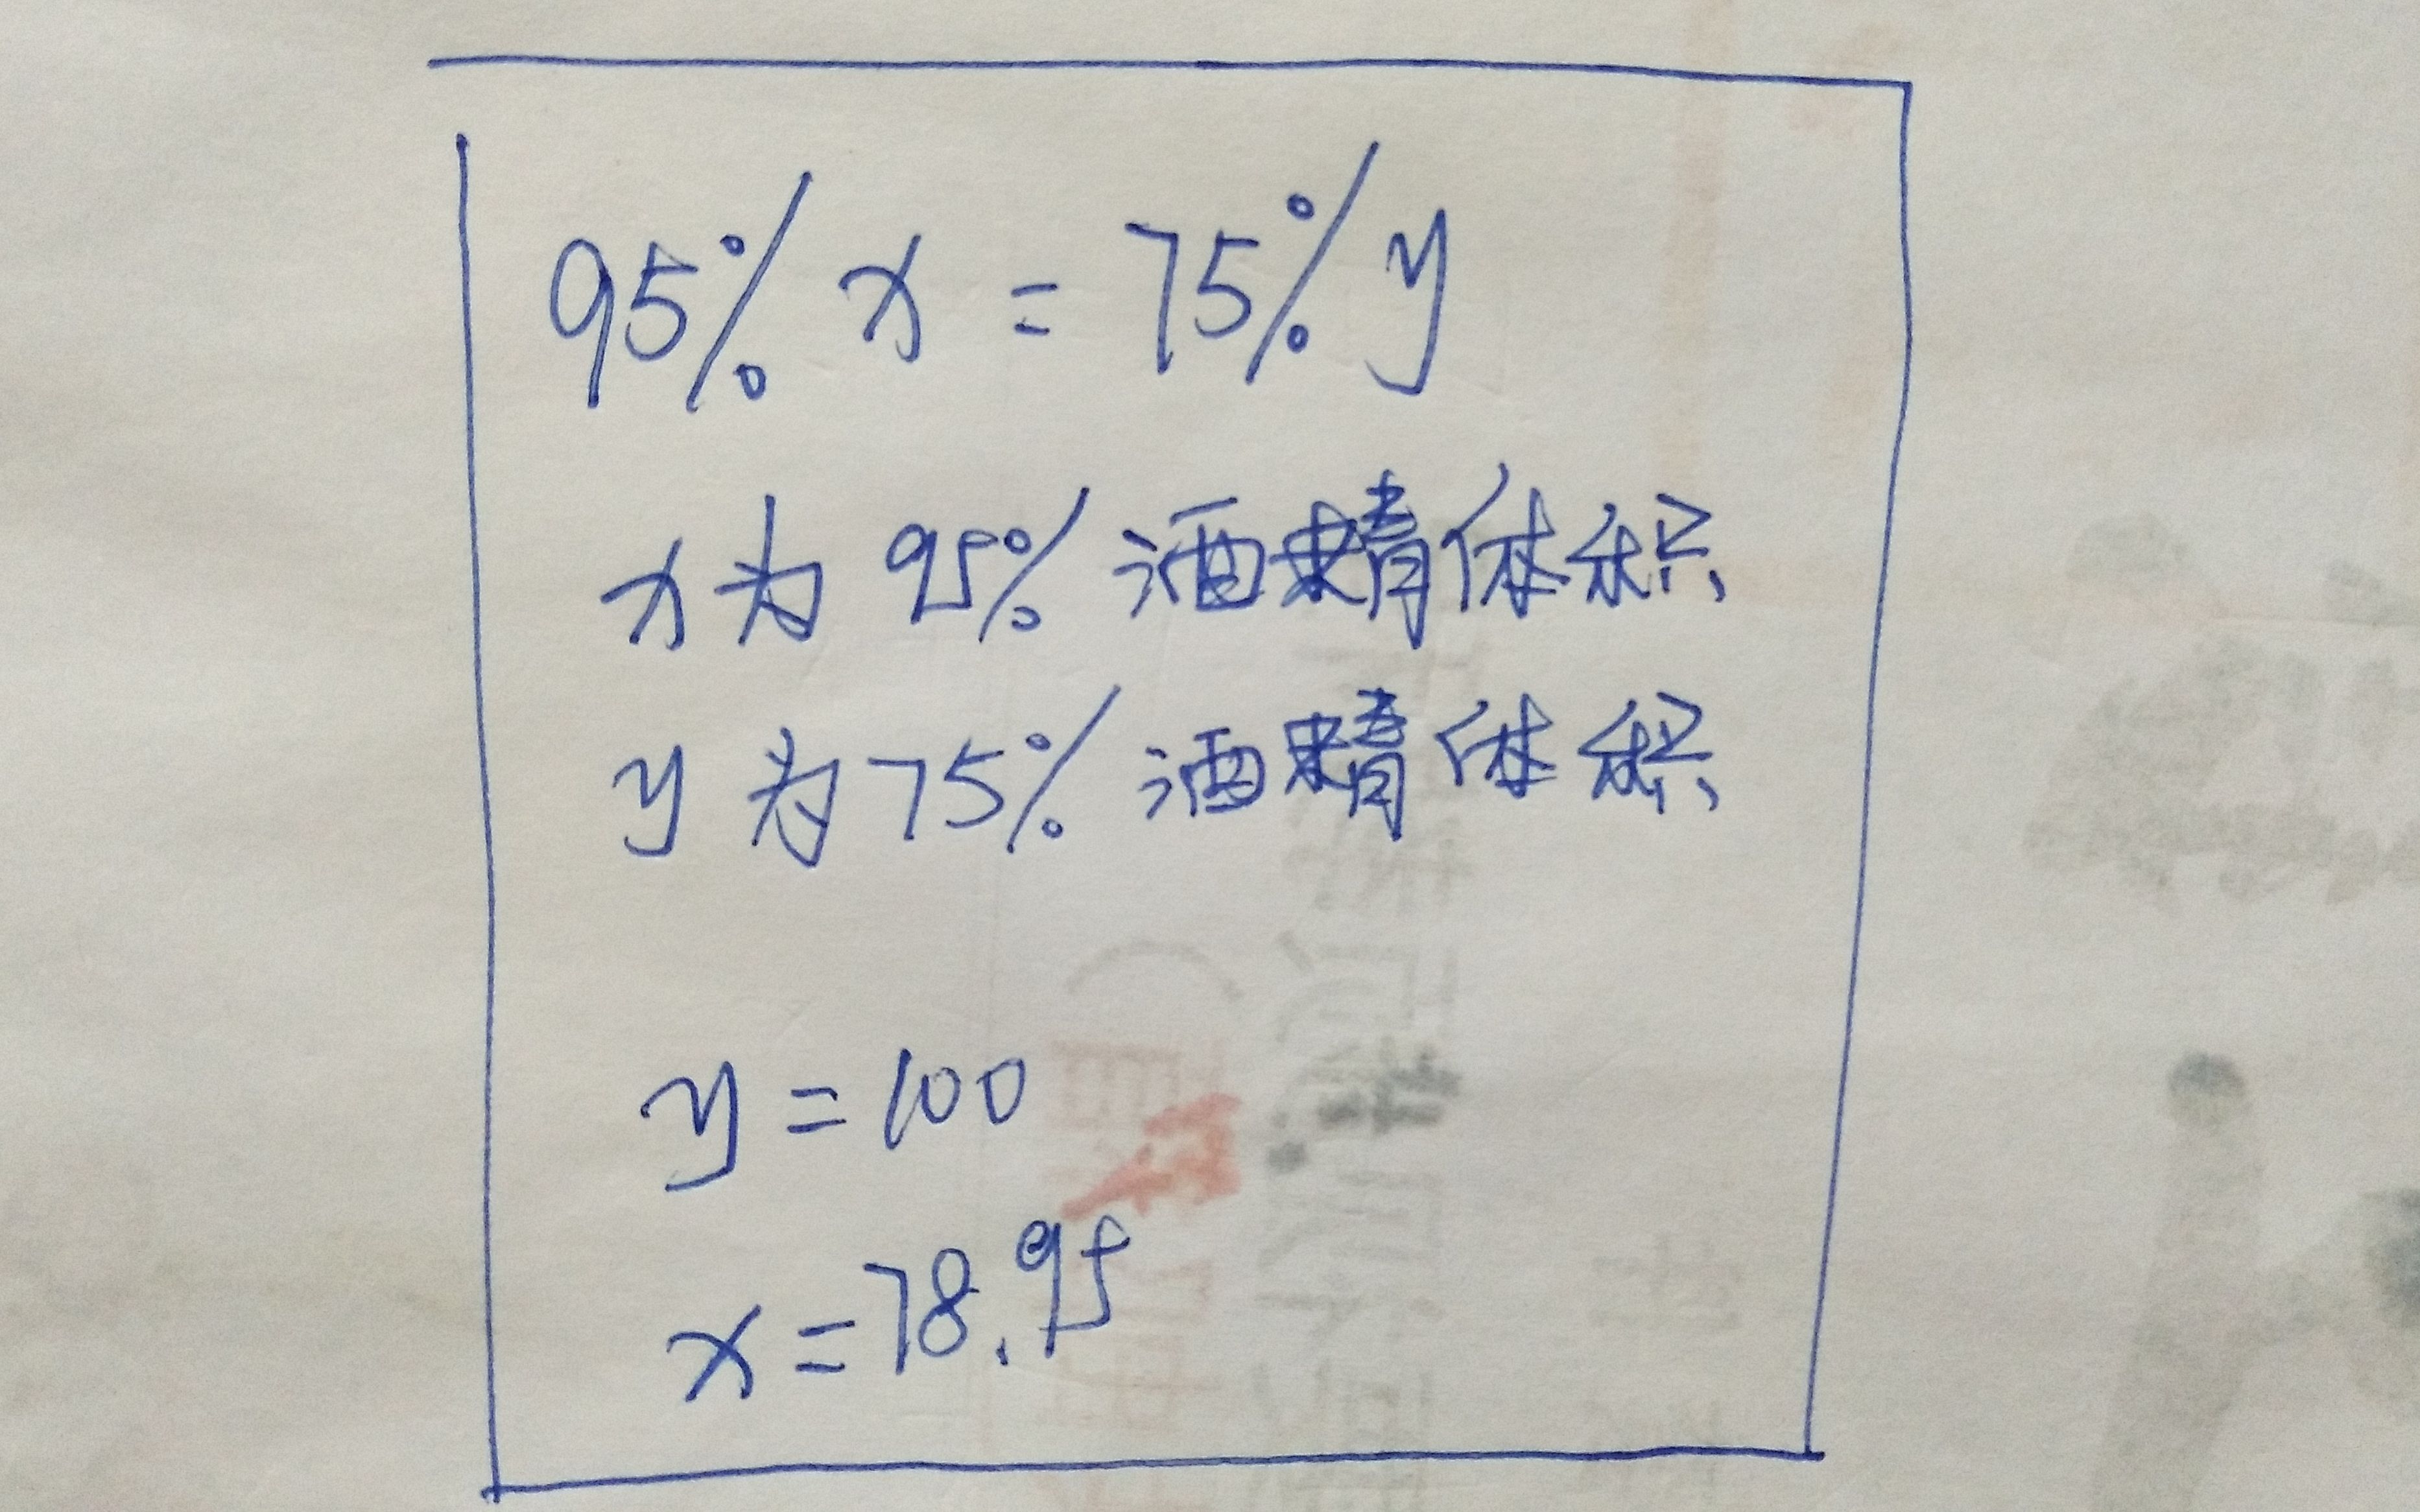 95% x = 75% y
x为 95% 酒精体积
y 为 75% 酒精体积
y = 100
x = 78.95